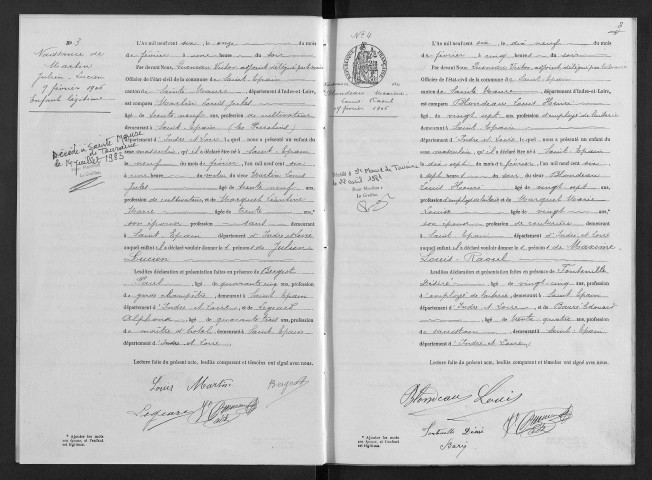 No 3
Naissance de
Martin
Julien Lucien
9 février 1906
Enfant légitime
Décédé à Sainte Maure
de Touraine
le 19 juillet 1983
Le Greffier
L'An mil neuf cent six, le onze du mois
de février à neuf heures du soir
Par devant Nous adjoint délégué par le maire
Officier de l'état civil de la commune de Saint Epain
canton de Sainte Maure, département d'Indre-et-Loire,
est comparu Martin Louis Jules
âgé de trente neuf ans, profession de cultivateur
demeurant à Saint Epain
département d'Indre et Loire, lequel nous a présenté un enfant du
sexe masculin, qu'il a déclaré être né à Saint Epain
le neuf du mois de février, l'an mil neuf cent six
à une heure du matin du sieur Martin Louis
Jules âgé de trente neuf ans,
profession de cultivateur, et de Marquet
Marie âgée de trente ans,*
son épouse, profession sans demeurant
à Saint Epain département d'Indre et Loire
auquel enfant il a déclaré vouloir donner le s prénom s de Julien
Lucien
Lesdites déclaration et présentation faites en présence de Bergeot
Paul, âgé de quarante cinq ans, profession
de garde champêtre, demeurant à Saint Epain
département d'Indre et Loire, et de
Alphonse, âgé de quarante trois ans, profession
de maître d'hôtel, demeurant à Saint Epain
département d'Indre et Loire.
Lecture faite du présent acte, lesdits comparant et témoins ont signé avec nous.
Louis Martin Bergeot
* Ajouter les mots
son épouse, si l'enfant
est légitime.
8
No 4
Naissance de
Blondeau Maxime
Louis Raoul
17 février 1906
Décédé à Ste Maure de Touraine
Pour Mention :
Le Greffier
L'An mil neuf cent six, le dix neuf du mois
de février à cinq heures du soir
Par devant Nous adjoint délégué par le maire
Officier de l'état civil de la commune de Saint Epain
canton de Sainte Maure, département d'Indre-et-Loire,
est comparu Blondeau Louis Henri
âgé de vingt sept ans, profession d'employé de laiterie
demeurant à Saint Epain
département d'Indre et Loire, lequel nous a présenté un enfant du
sexe masculin, qu'il a déclaré être né à Saint Epain
le dix sept du mois de février, l'an mil neuf cent six
à sept heures du soir du sieur Blondeau
Louis Henri âgé de vingt sept ans,
profession d'employé de laiterie, et de Marquet Marie
Louise âgée de vingt ans,*
son épouse, profession de couturière, demeurant
à Saint Epain département d'Indre et Loire
auquel enfant il a déclaré vouloir donner le s prénom s de Maxime
Louis Raoul
Lesdites déclaration et présentation faites en présence de Fontenille
Désiré, âgé de vingt cinq ans, profession
d'employé de laiterie, demeurant à Saint Epain
département d'Indre et Loire, et de Barré Edouard
âgé de trente quatre ans, profession
de sacristain, demeurant à Saint Epain
département d'Indre et Loire.
Lecture faite du présent acte, lesdits comparant et témoins ont signé avec nous.
Blondeau Louis
Fontenille Désiré
* Ajouter les mots
son épouse, si l'enfant
est légitime.